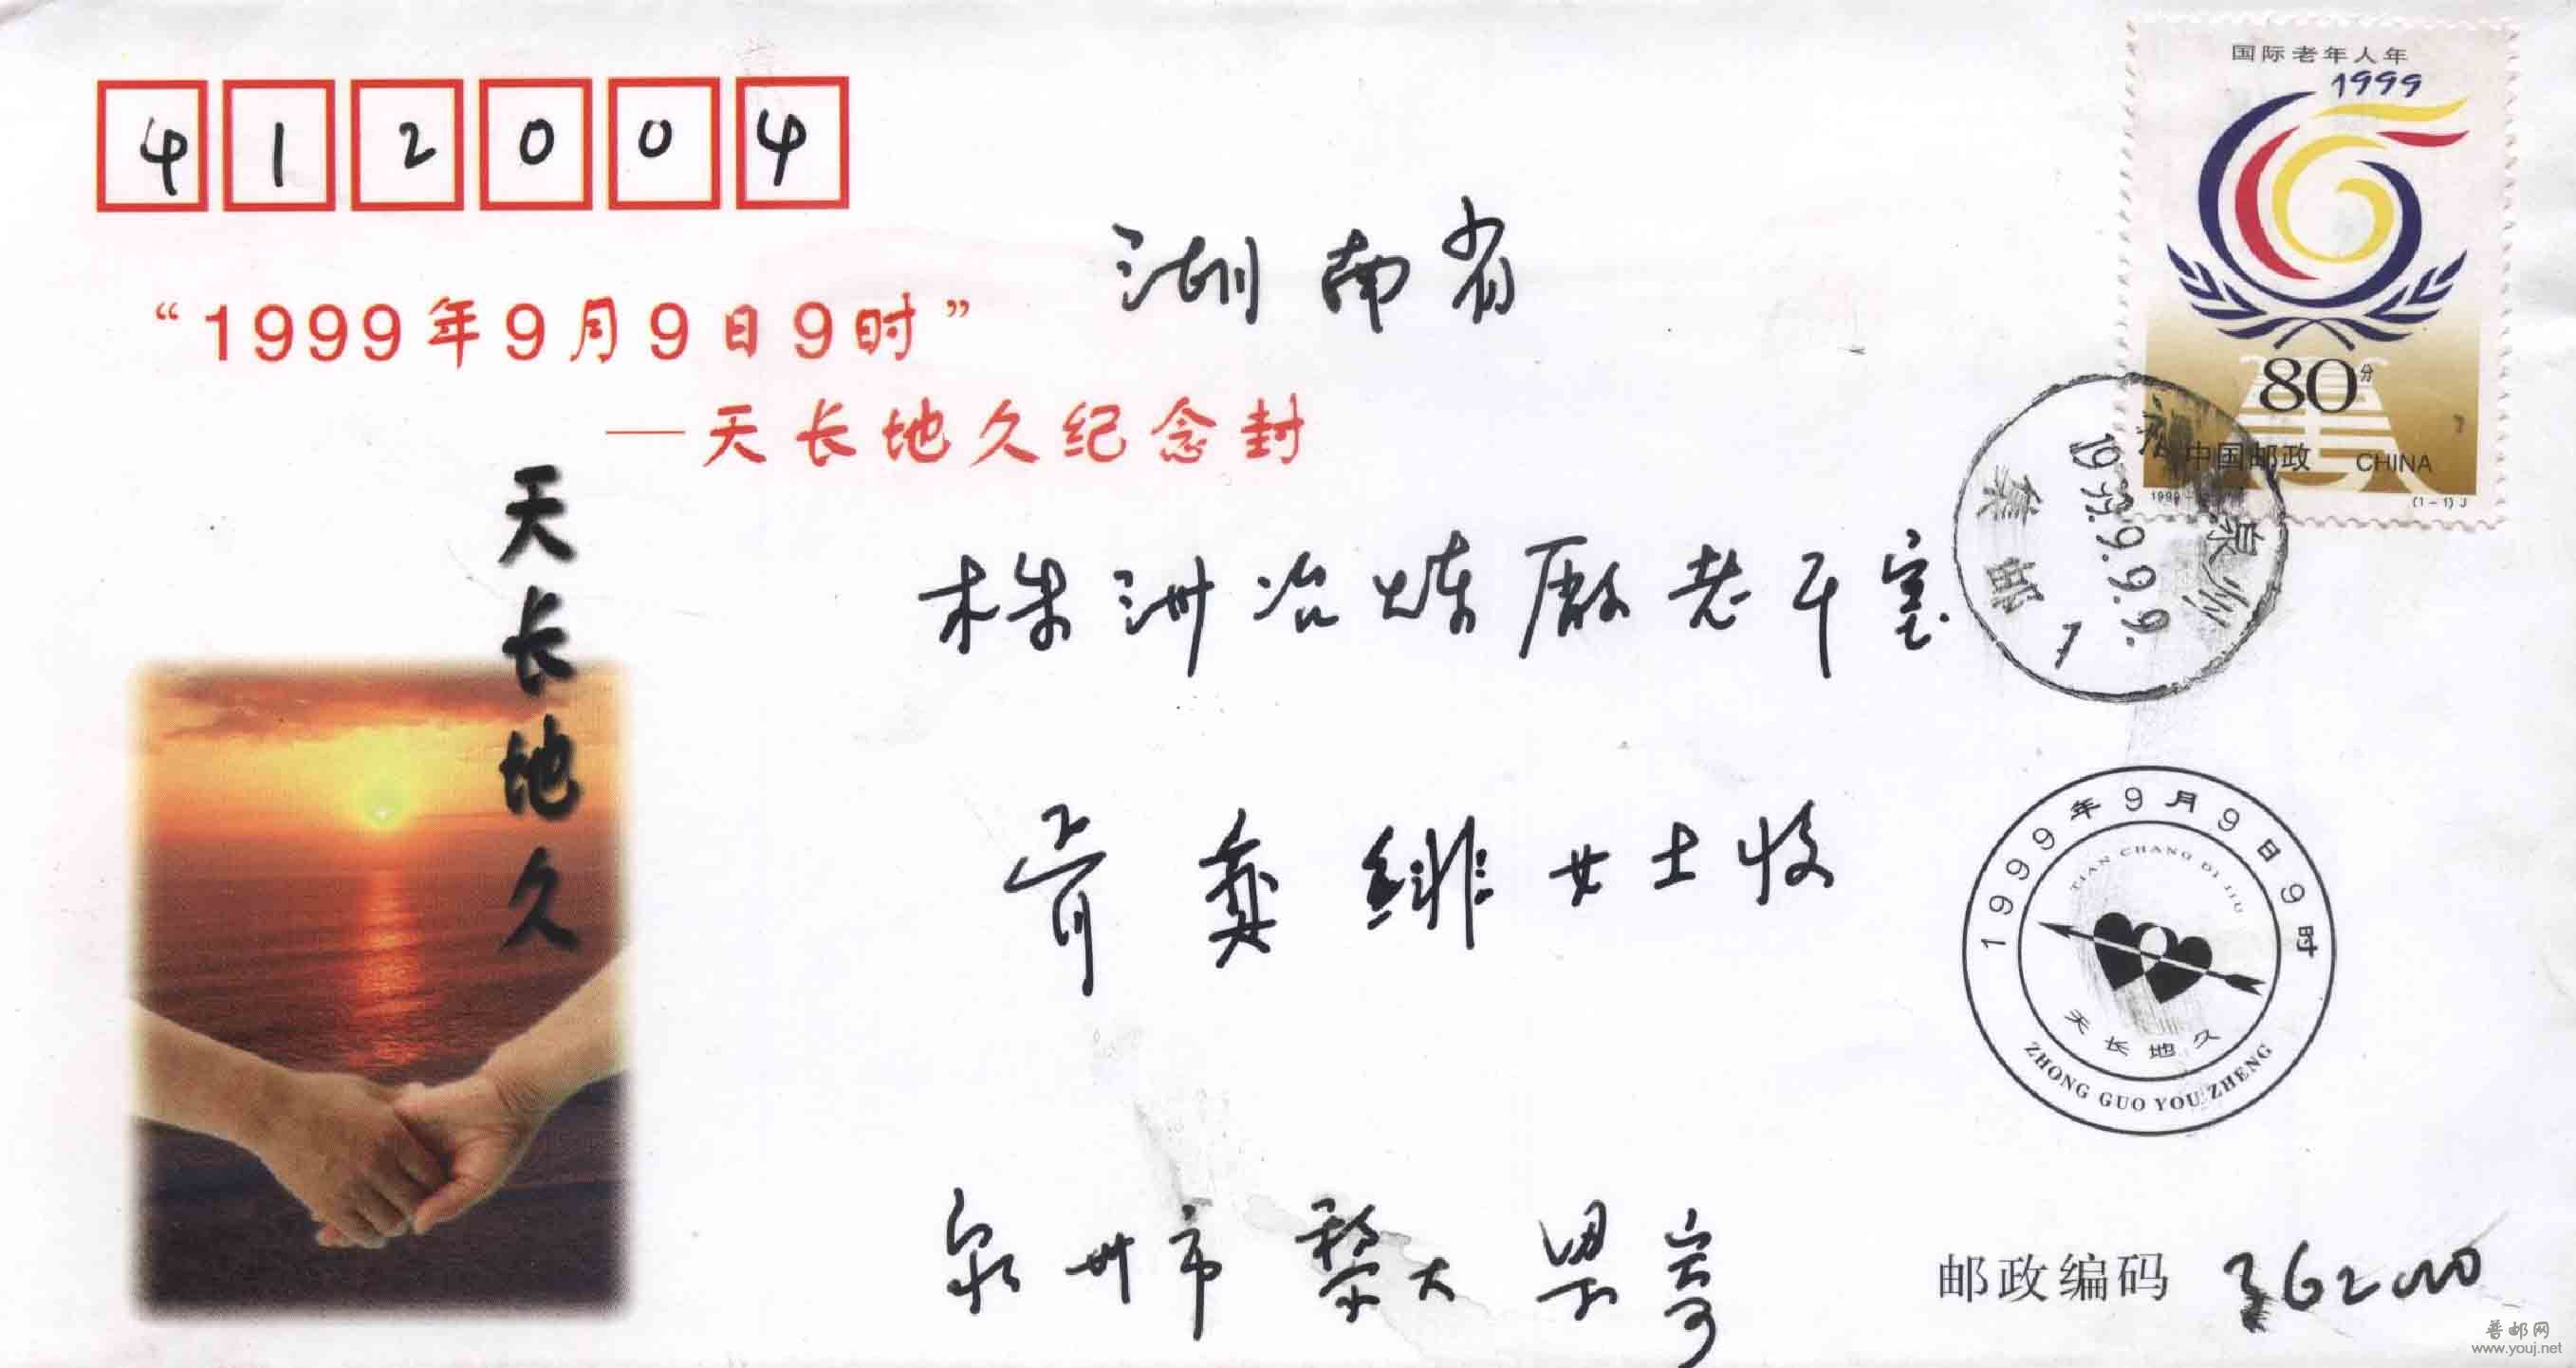 国际老年人年
1999
412004
湖南省
“1999年9月9日9时”
80分
—天长地久纪念封
中国邮政 CHINA
(1-1)J
天长地久
泉州
1999.9.9.9
邮
1
株洲冶炼厰老干室
女士收
1999年9月9日9时
TIAN CHANG DI JIU
天长地久
ZHONG GUO YOU ZHENG
泉州市黎大 寄
邮政编码 362000
普邮网
www.youj.net